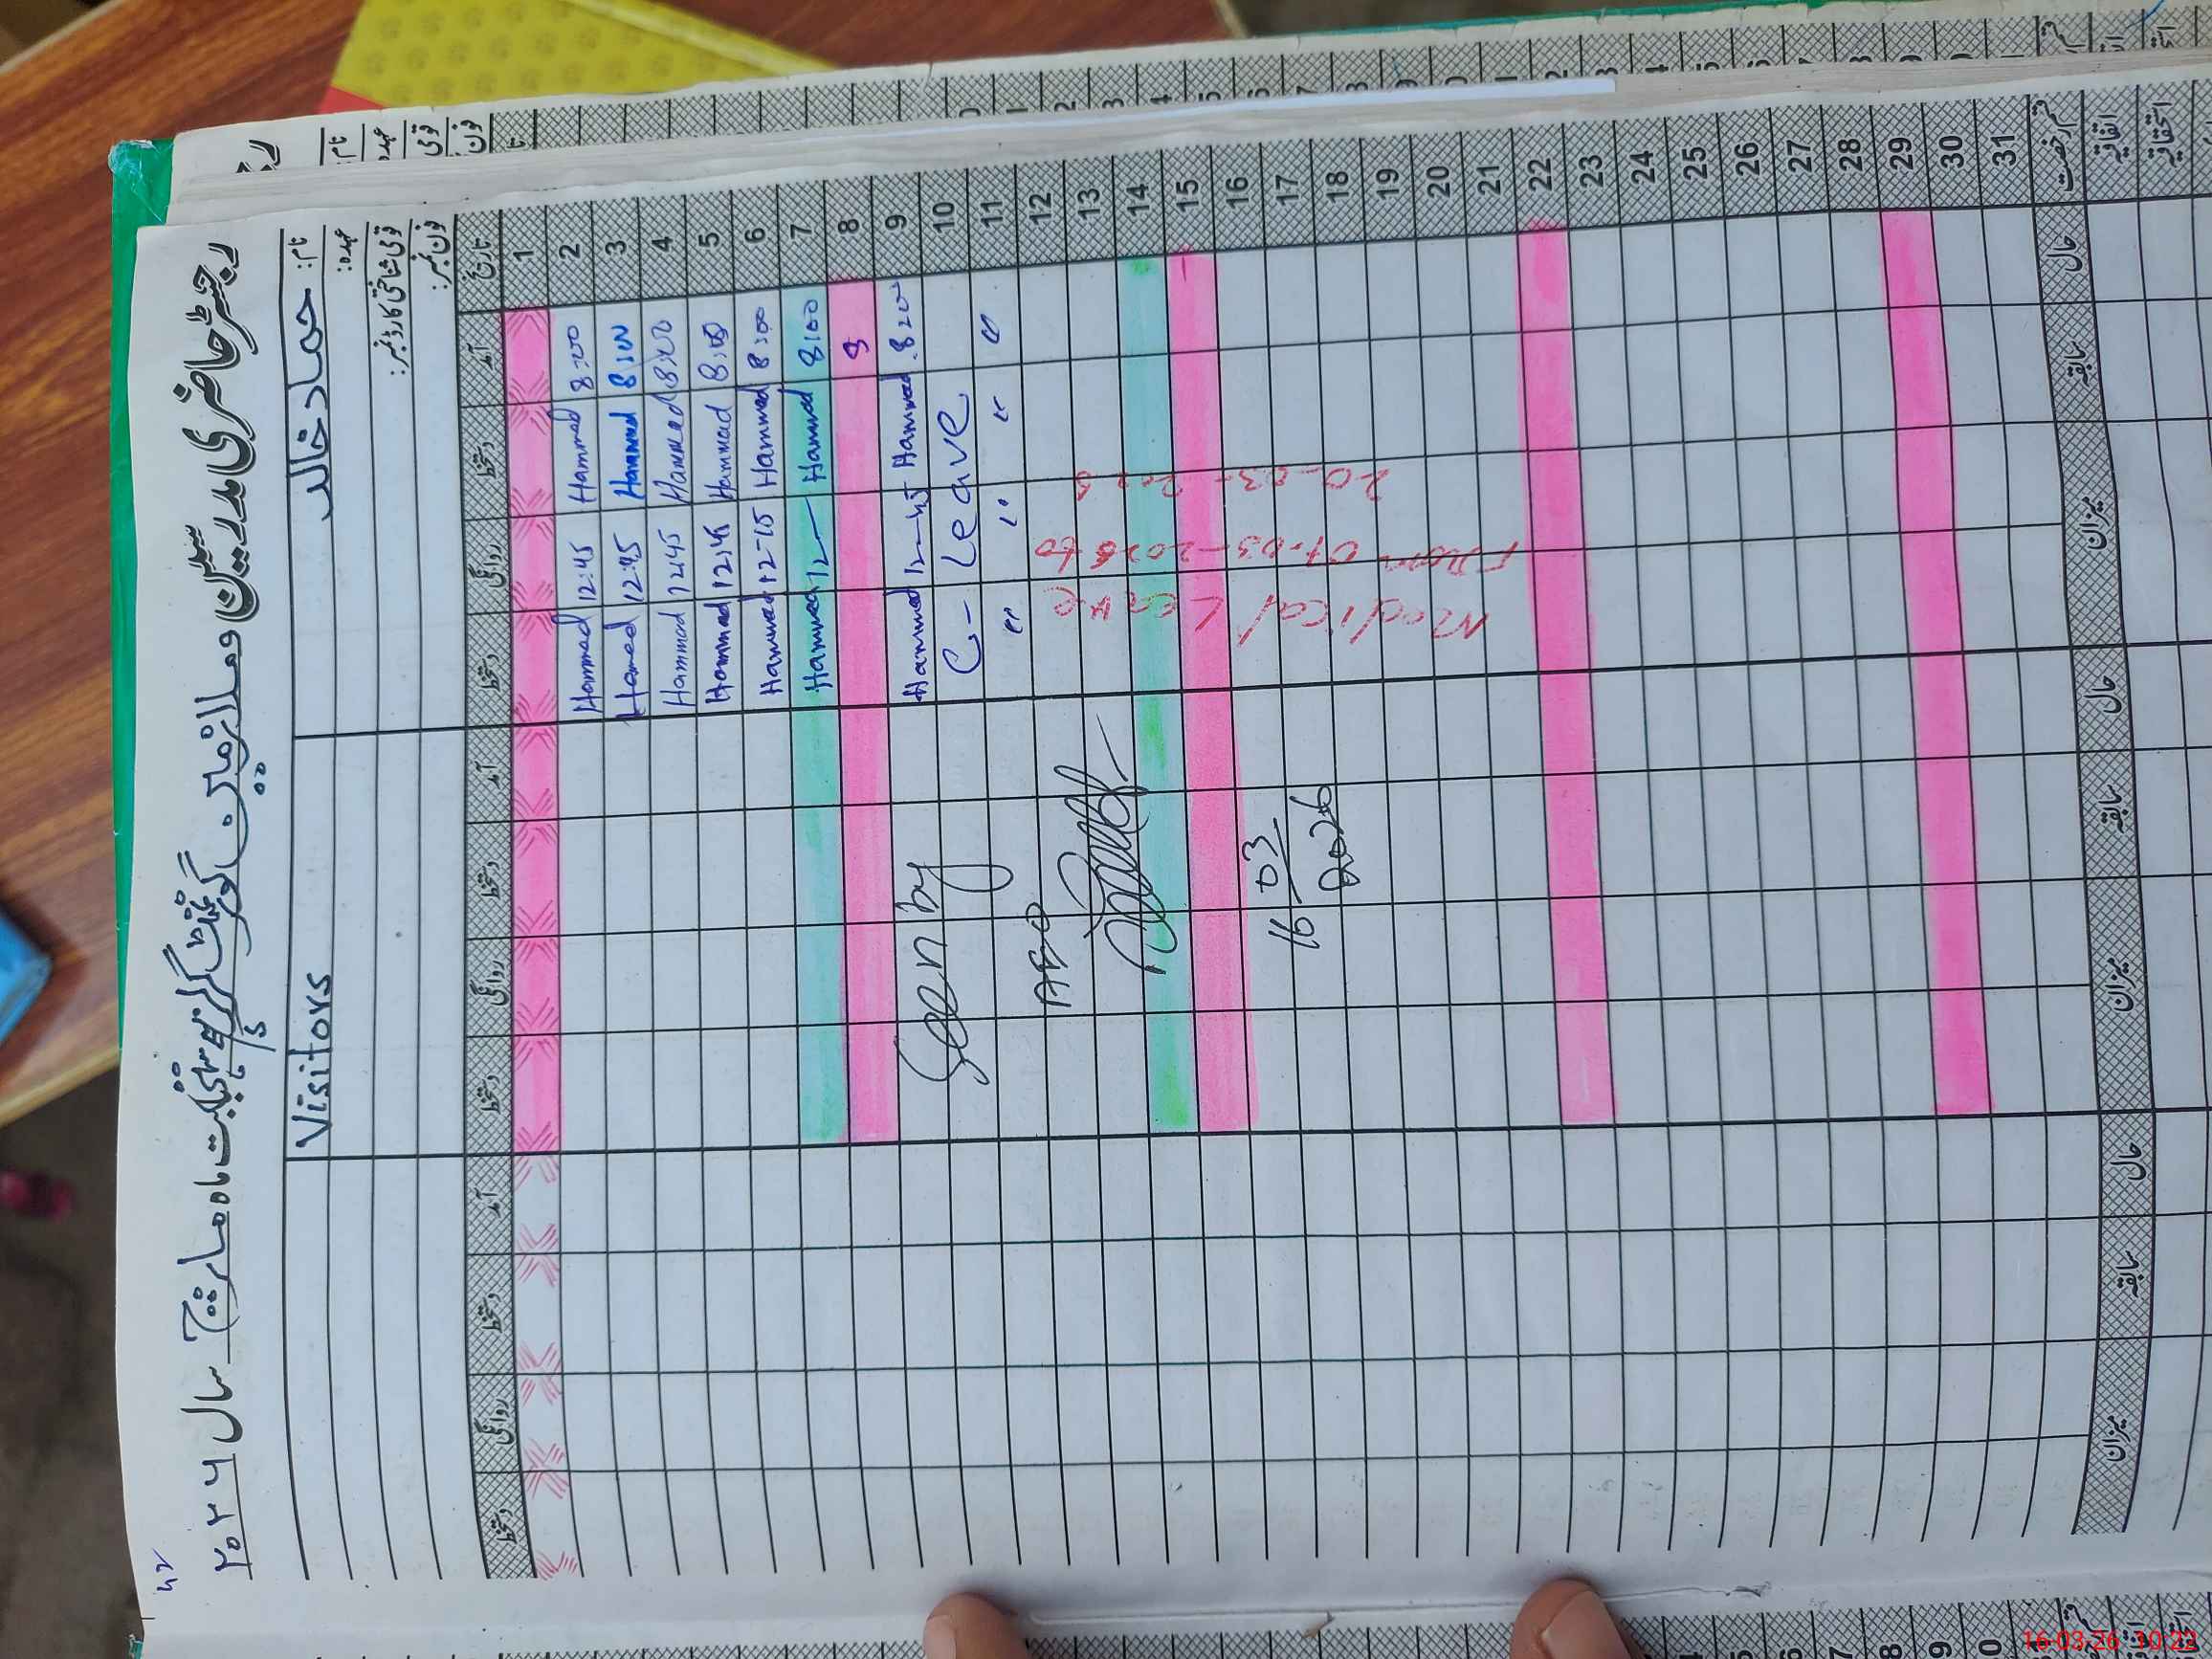 ۴۲
رجسٹر حاضری مدرسین و ملازمین گورنمنٹ گرلز پرائمری سکول بابت ماہ مارچ سال ۲۰۲۶
نام: حماد خالد
Visitors
عہدہ:
قومی شناختی کارڈ نمبر:
فون نمبر:
تاریخ آمد دستخط روانگی دستخط آمد دستخط روانگی دستخط آمد دستخط روانگی دستخط
1
2 8:00 Hammad 12:45 Hammad
3 8:00 Hammad 12:45 Hammad
4 8:00 Hammad 12:45 Hammad
5 8:00 Hammad 12:45 Hammad
6 8:00 Hammad 12-15 Hammad
7 8:00 Hammad 12 Hammad
8 S
9 8:00 Hammad 12-45 Hammad
10 C- Leave
11 " " " "
12
13
14
15
16
17
18
19
20
21
22
23
24
25
26
27
28
29
30
31
Medical Leave
From 07-03-2026 to
20-03-2026
Seen by
AEO
16 03
2026
قسم رخصت حال سابقہ میزان حال سابقہ میزان حال سابقہ میزان
اتفاقیہ
استحقاقیہ
16-03-26 10:22